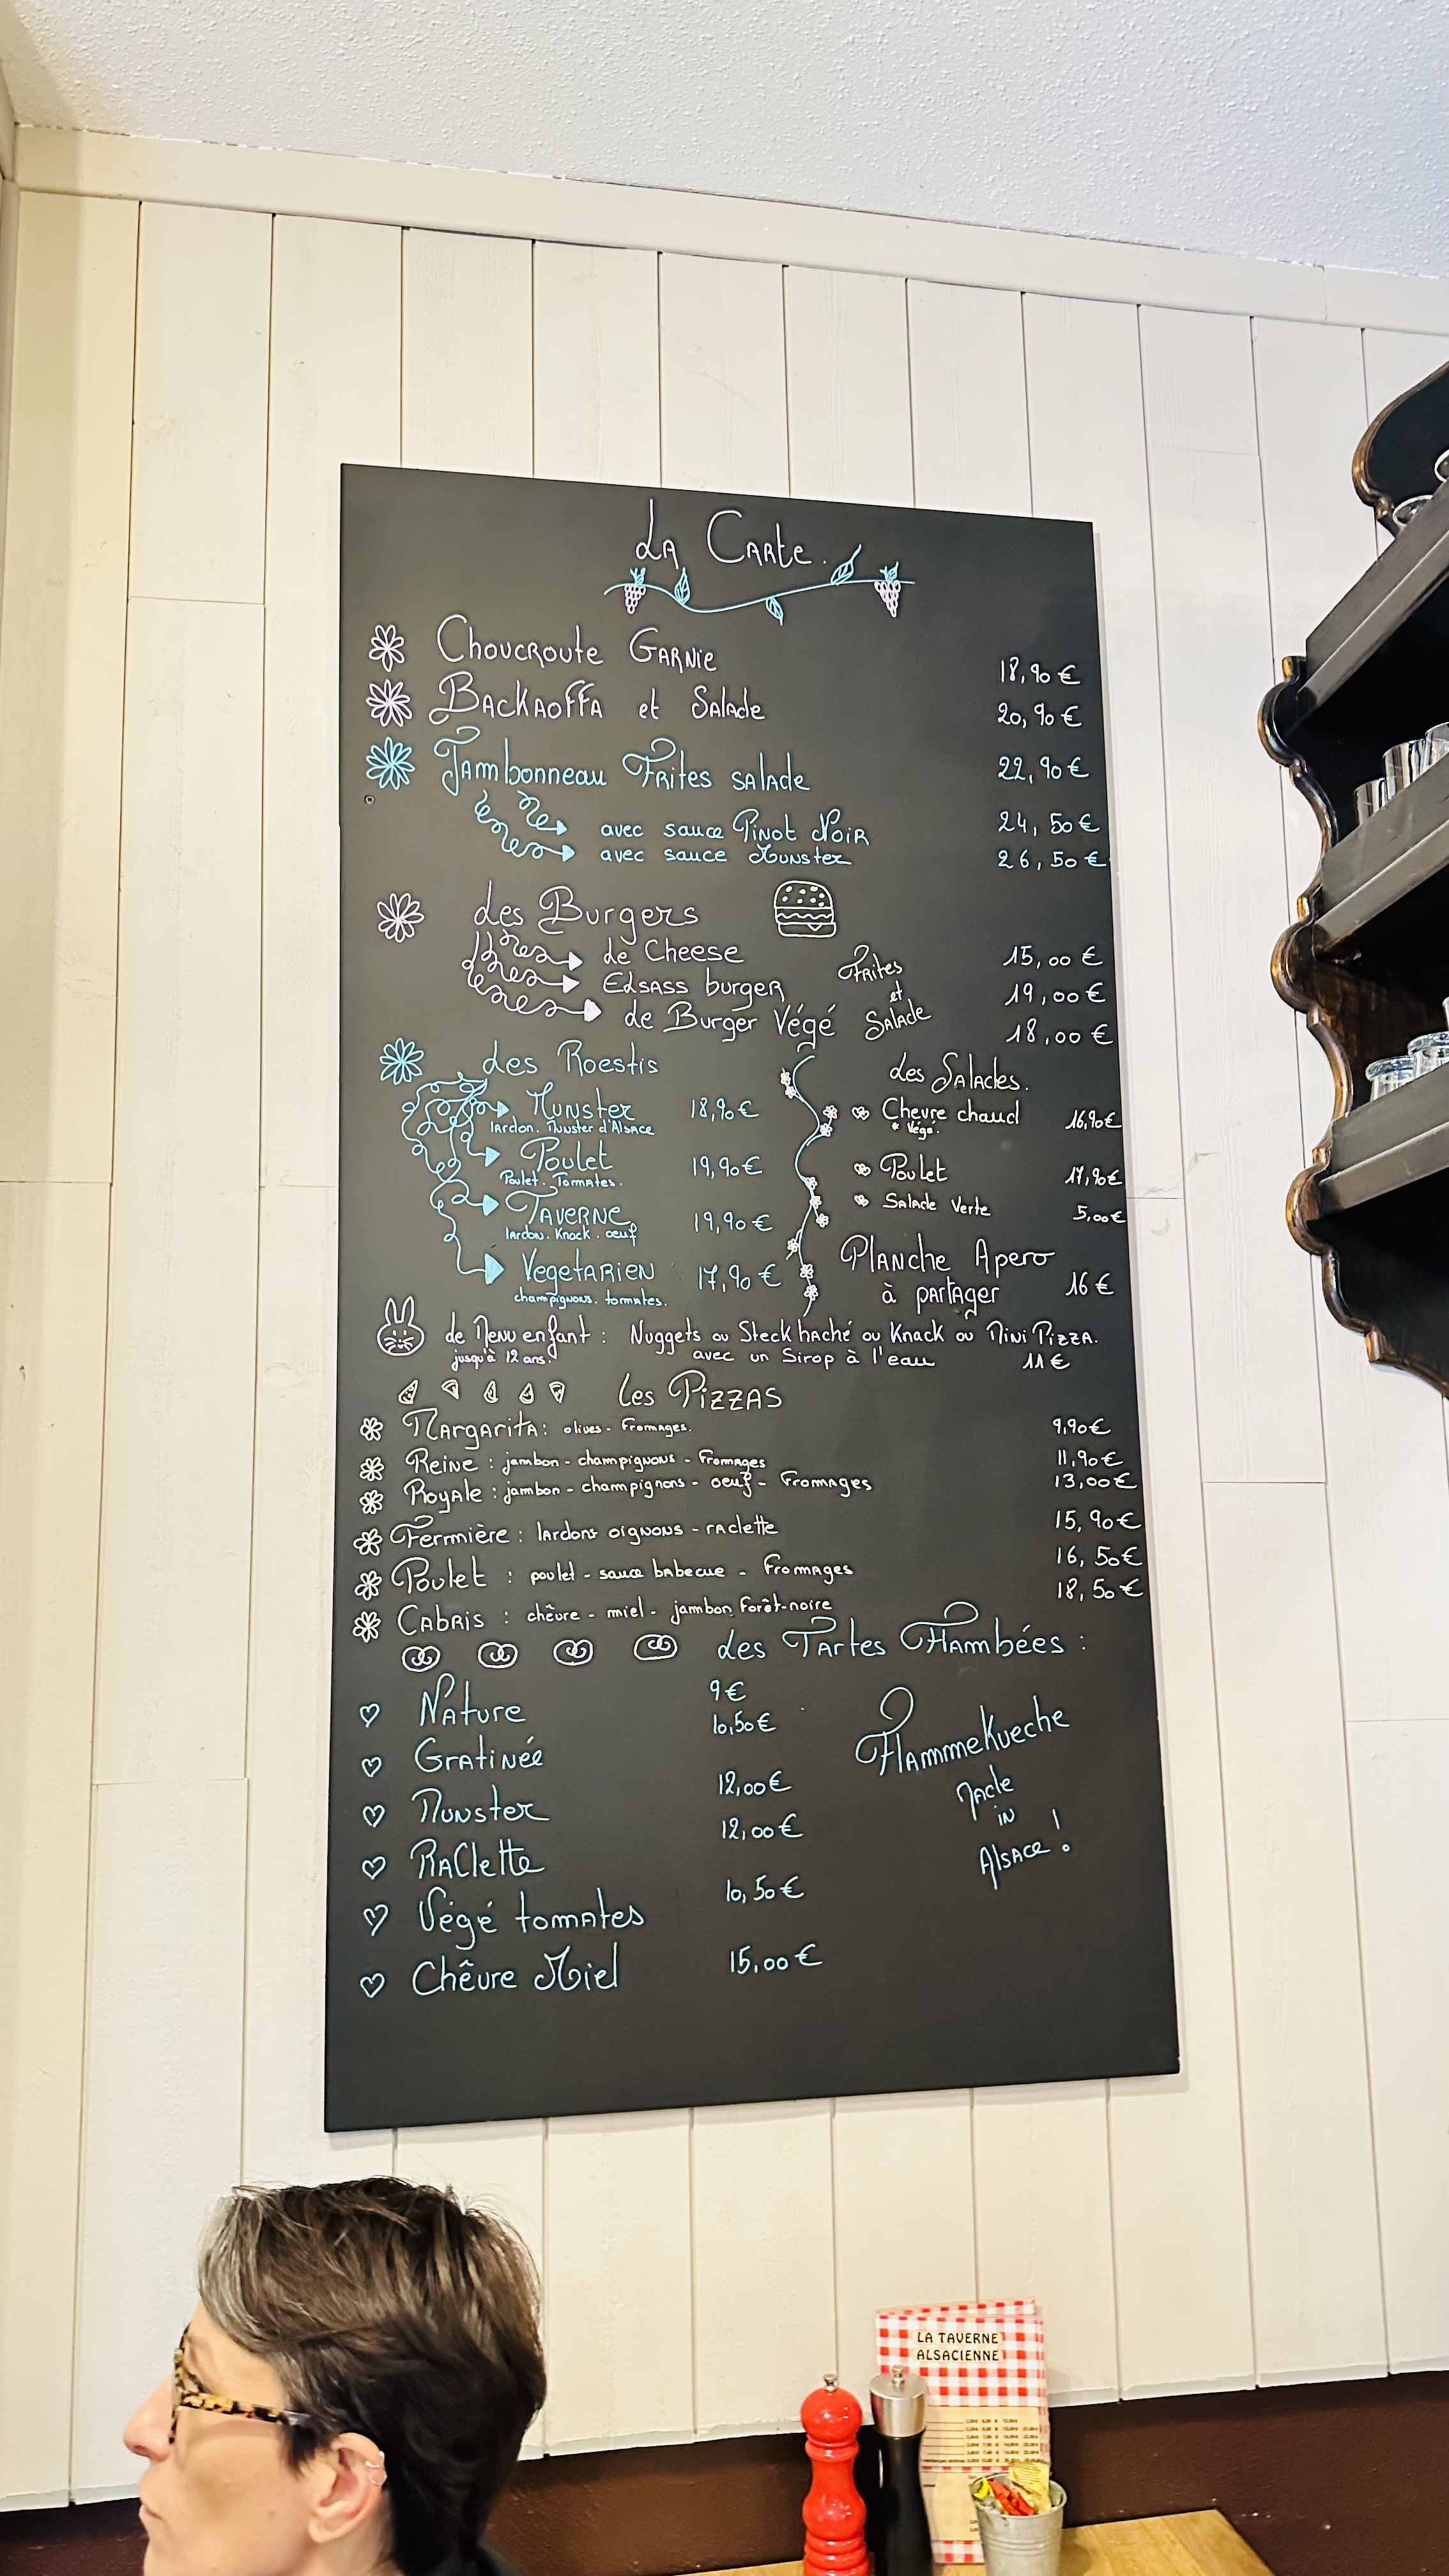 La Carte.
Choucroute Garnie 18,90€
Backaoffa et Salade 20,90€
Jambonneau Frites salade 22,90€
avec sauce Pinot Noir 24,50€
avec sauce Munster 26,50€
Les Burgers
Le Cheese 15,00€
Elsass burger 19,00€
Le Burger Végé 18,00€
Frites
et
Salade
Les Roestis
Munster 18,90€
lardon. Munster d'Alsace
Poulet 19,90€
Poulet. Tomates.
Taverne 19,90€
lardon. Knack. oeuf
Vegetarien 17,90€
champignons. tomates.
Les Salades.
Chevre chaud 16,90€
* Végé.
Poulet 17,90€
Salade Verte 5,00€
Planche Apero
à partager 16€
Le Menu enfant : Nuggets ou Steck haché ou Knack ou Mini Pizza.
jusqu'à 12 ans. avec un Sirop à l'eau 11€
Les Pizzas
Margarita: olives - Fromages. 9,90€
Reine : jambon - champignons - Fromages 11,90€
Royale : jambon - champignons - oeuf - Fromages 13,00€
Fermière : lardons oignons - raclette 15,90€
Poulet : poulet - sauce babecue - Fromages 16,50€
Cabris : chêvre - miel - jambon Forêt-noire 18,50€
Les Tartes Flambées :
Nature 9€
Gratinée 10,50€
Munster 12,00€
Raclette 12,00€
Végé tomates 10,50€
Chêvre Miel 15,00€
Flammekueche
Made
in
Alsace !
LA TAVERNE
ALSACIENNE